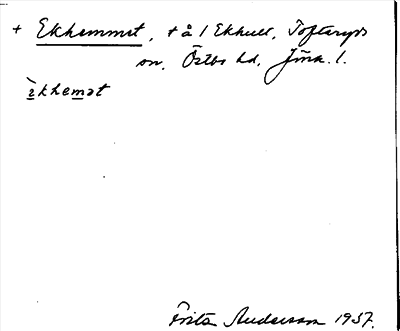 + Ekhemmet, t å 1 Ekhult, Tofteryds
sn, Östbo hd, Jönk. l.
èkhemət
Frits Andersson 1937.